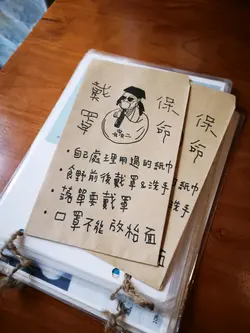 戴罩
保命
・自己處理用過的紙巾
・食野前後戴罩&洗手
・落單要戴罩
・口罩不能放枱面
保命
紙巾
手
面